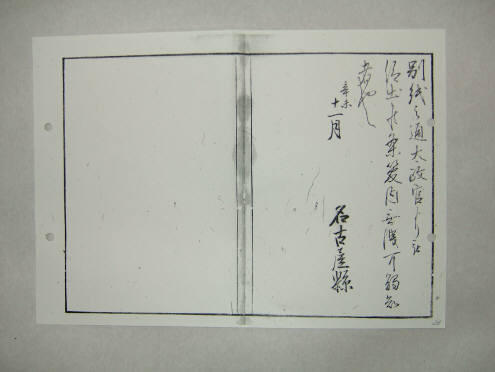 別紙之通太政官より被
仰出候条管内無洩可觸知
者也
辛未
十一月
名古屋縣